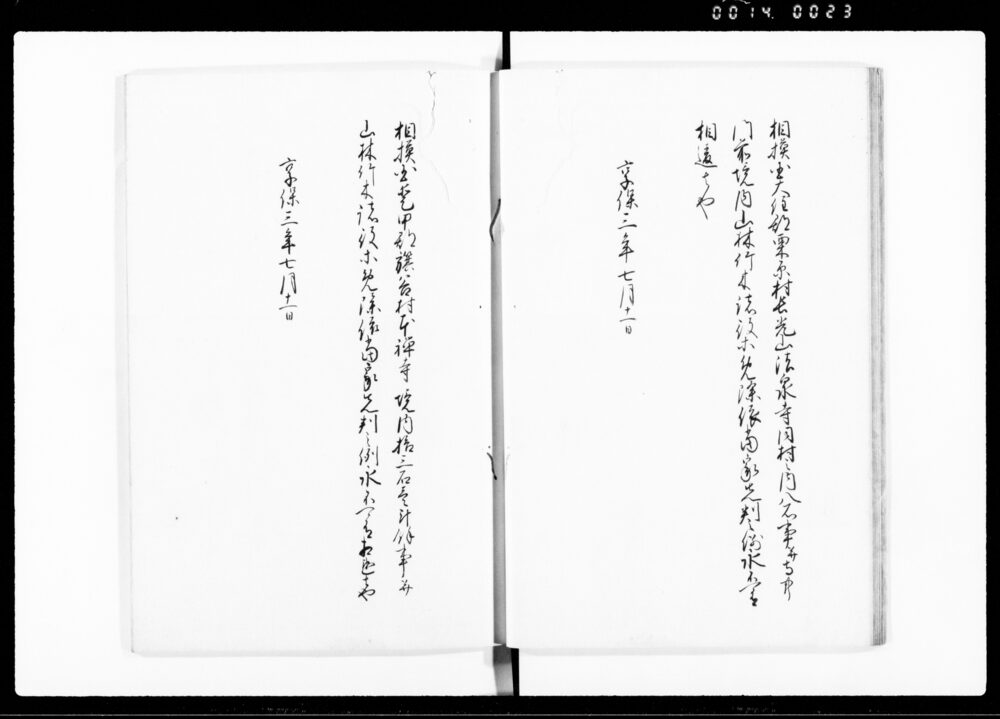 0014 0023
相摸国大住郡栗原村長光山法泉寺同村之内八石事并寺中
門前境内山林竹木諸役等免除依当家先判之例永不可有
相違者也
享保三年七月十一日
相摸国愛甲郡村本禅寺境内拾三石壱斗余事并
山林竹木諸役等免除依当家先判之例永不可有相違者也
享保三年七月十一日